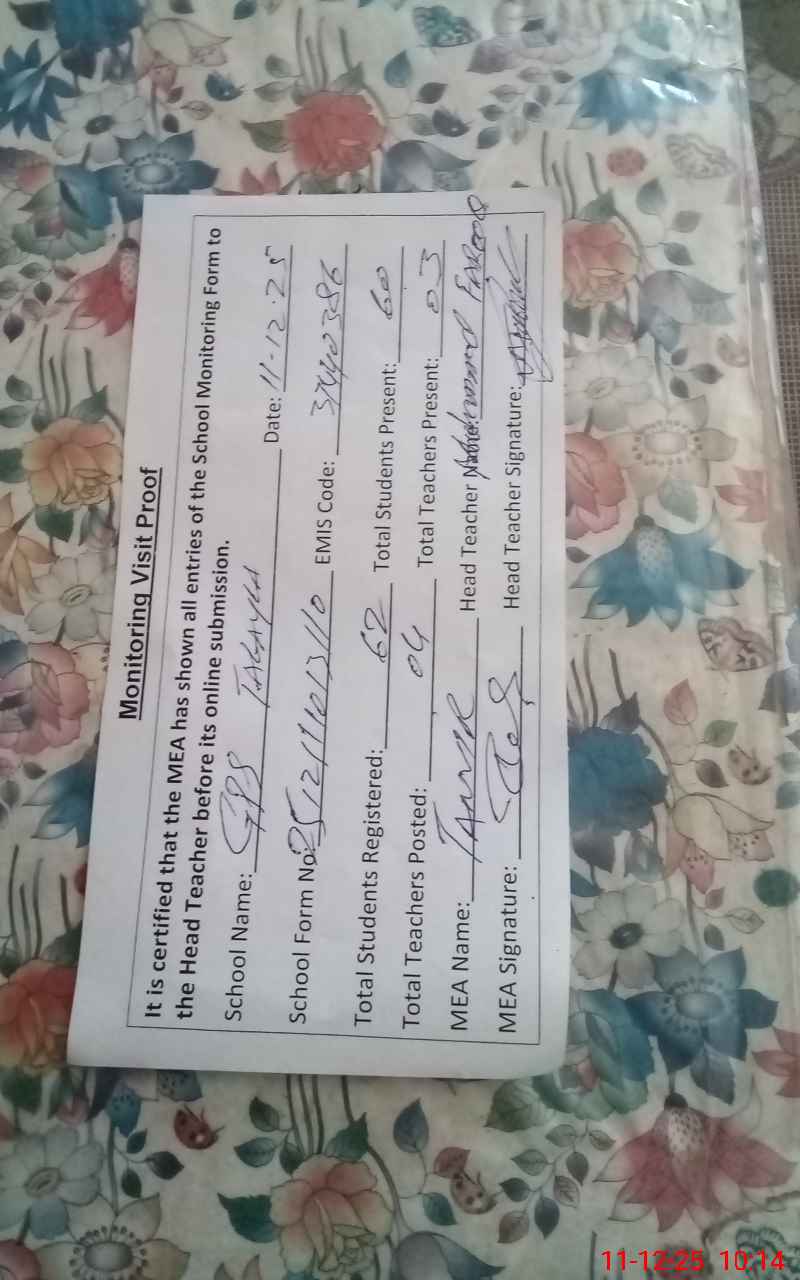 Monitoring Visit Proof
It is certified that the MEA has shown all entries of the School Monitoring Form to
the Head Teacher before its online submission.
School Name: GPS Date: 11-12-25
School Form No: EMIS Code:
Total Students Registered: 62 Total Students Present: 60
Total Teachers Posted: 04 Total Teachers Present: 03
MEA Name: Head Teacher Name: FAROOQ
MEA Signature: Head Teacher Signature:
11-12-25 10:14